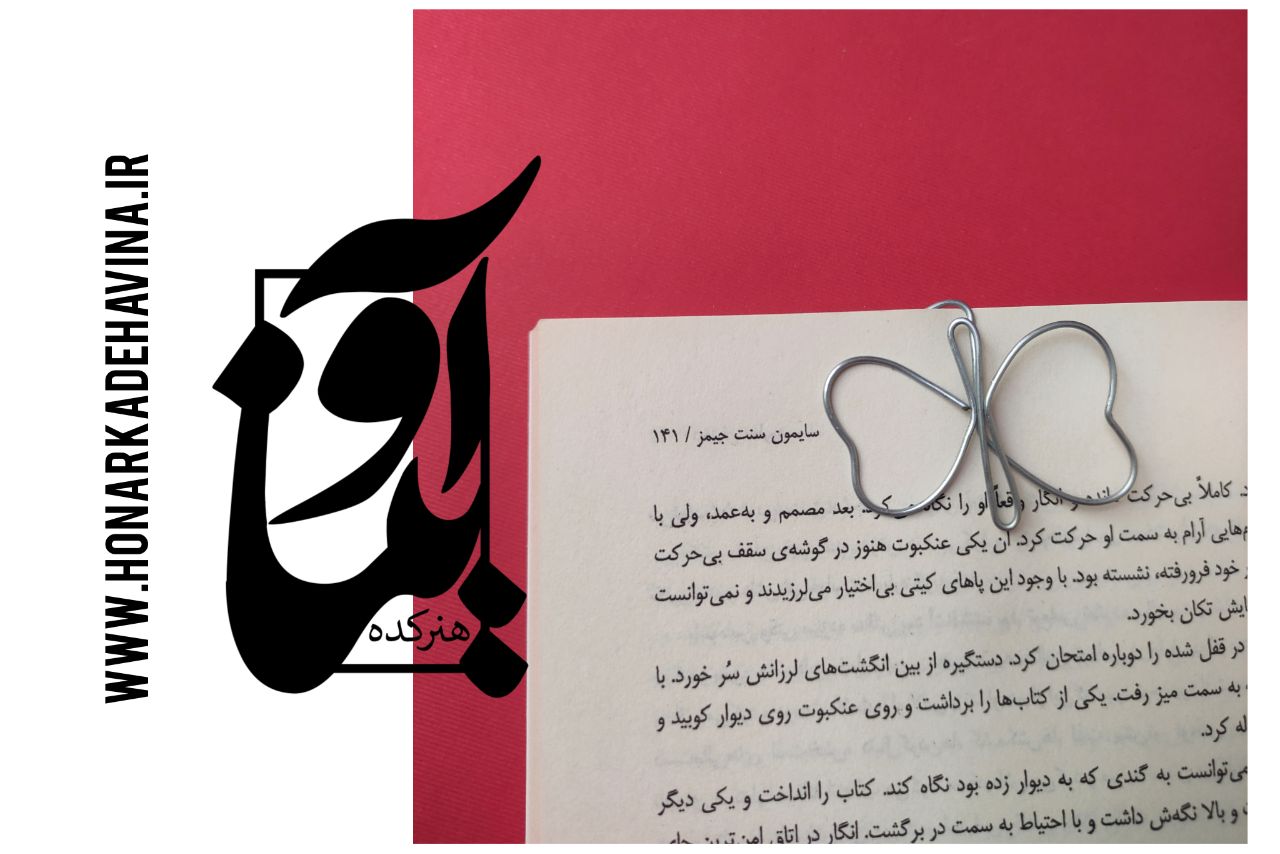 WWW.HONARKADEHAVINA.IR
آوینا
هنرکده
سایمون سنت جیمز / ۱۴۱
کاملاً بی‌حرکت مانده و انگار واقعاً او را نگاه می‌کرد. بعد مصمم و به‌عمد، ولی با
آرام به سمت او حرکت کرد. آن یکی عنکبوت هنوز در گوشه‌ی سقف بی‌حرکت
خود فرورفته، نشسته بود. با وجود این پاهای کیتی بی‌اختیار می‌لرزیدند و نمی‌توانست
تکان بخورد.
در قفل شده را دوباره امتحان کرد. دستگیره از بین انگشت‌های لرزانش سُر خورد. با
به سمت میز رفت. یکی از کتاب‌ها را برداشت و روی عنکبوت روی دیوار کوبید و
کرد.
نمی‌توانست به گندی که به دیوار زده بود نگاه کند. کتاب را انداخت و یکی دیگر
و بالا نگه‌ش داشت و با احتیاط به سمت در برگشت. انگار در اتاق امن‌ترین جای